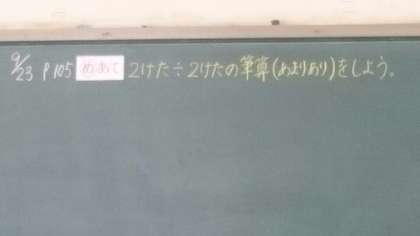 9/23 P105 めあて 2けた÷2けたの筆算(あまりあり)をしよう。